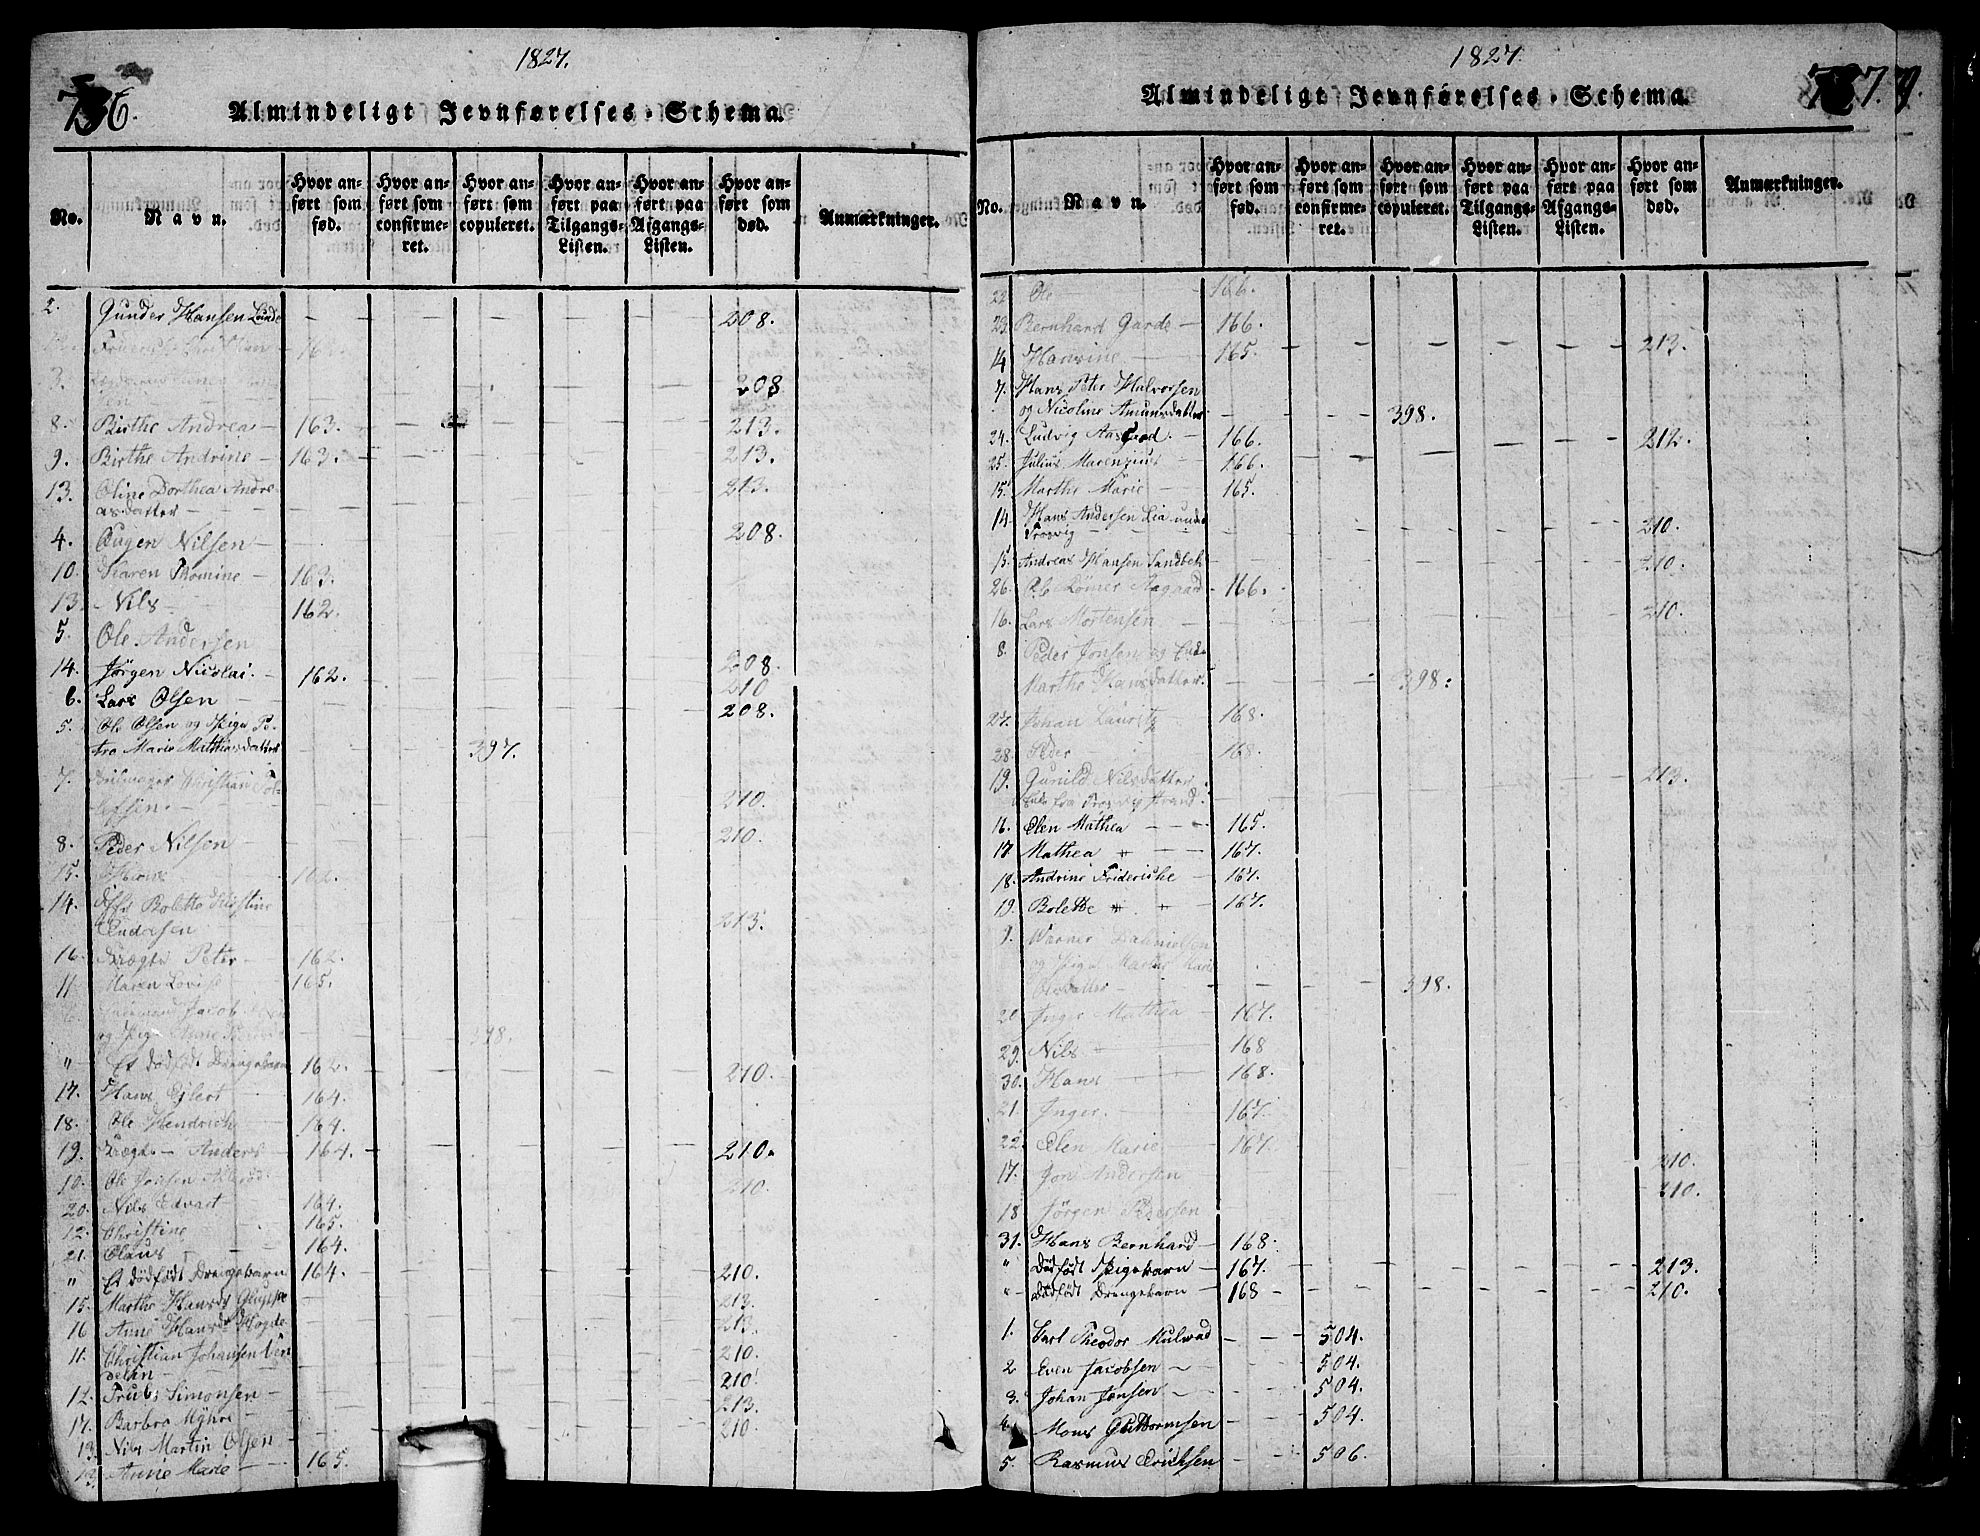 1827.
736.
Almindeligt Jevnførelses-Schema.
No.
Navn.
Hvor anført som fød.
Hvor anført som confirmeret.
Hvor anført som copuleret.
Hvor anført paa Tilgangs-Listen.
Hvor anført paa Afgangs-Listen.
Hvor anført som død.
Anmærkninger.
2. Gunder Hansen Lunde — 208.
3. — 208
8. Birthe Andrea — 163. — 213.
9. Birthe Andrine — 163. — 213.
13. Oline Dorthea Andre-
asdatter — 213.
4. Augen Nilsen — 208.
10. Karen Thomine — 163.
13. Nils — 162.
5. Ole Andersen — 208.
14. Jörgen Nicolai. — 162. — 210
6. Lars Olsen — 208.
5. Ole Olsen og Pige Pe-
tra Marie Mathiasdatter — 397.
7. Christian To-
lefsen. — 210.
8. Peder Nilsen — 210.
15. Hans — 162.
14. Bolette Christine
— 213.
16. Peter — 162.
11. Maren Lovise — 165.
Jacob
og Pige Anne — 398.
" Et dödfödt Drengebarn 162. — 210.
17. Hans Eilert — 164.
18. Ole Hendrich — 164.
19. Anders — 164. — 210.
10. Ole Jonsen — 210.
20. Nils Edvart — 164.
12. Christine — 165.
21. Claus — 164.
" Et dödfödt Drengebarn 164. — 210.
15. Marthe Hansd. — 213.
16 Anne Hansd. — 213.
11. Christian Johansen Ven
delin — 210.
12. Truls Simonsen — 210.
17. Barbro Myhre — 213.
13. Nils Martin Olsen — 210
12. Anne Marie — 165.
1827.
737.
Almindeligt Jevnførelses-Schema.
No.
Navn.
Hvor anført som fød.
Hvor anført som confirmeret.
Hvor anført som copuleret.
Hvor anført paa Tilgangs-Listen.
Hvor anført paa Afgangs-Listen.
Hvor anført som død.
Anmærkninger.
22. Ole — 166.
23. Bernhard Garde — 166.
14. Hansine — 165. — 213.
7. Hans Peter Halvorsen
og Nicoline Amundsdatter — 398.
24. Ludvig Aasgard. — 166. — 212.
25. Julius Marenzius — 166.
15. Marthe Marie — 165.
14. Hans Andersen Lia under
Trosvig — 210.
15. Andreas Hansen Sandbek — 210.
26. Ole Römer Aagaard — 166.
16. Lars Mortensen — 210.
8. Peder Jonsen og Enke
Marthe Hansdatter. — 398.
27. Johan Lauritz — 168.
28. Peder — 168.
19. Gunild Nilsdatter
Enke fra Trosvig Strand. — 213.
16. Elen Mathea — 165.
17 Mathea — 167.
18. Andrine Friderikke — 167.
19. Bolette — 167.
9. Werner Danielsen
og Pige Marthe Marie
Olsdatter — 398.
20 Inger Mathea — 167.
29. Nils — 168
30. Hans — 168.
21. Inger. — 167.
22. Elen Marie — 167.
17. Jon Andersen — 210.
18 Jörgen Pedersen — 210.
31. Hans Bernhard — 168.
" Dödfödt Pigebarn — 167. — 213.
" Dödfödt Drengebarn — 168 — 210.
1. Carl Theodor Mulvad — 504.
2 Even Jacobsen — 504.
3. Johan Jensen — 504.
4. Mons Guttormsen — 504.
5. Rasmus Erichsen — 506.